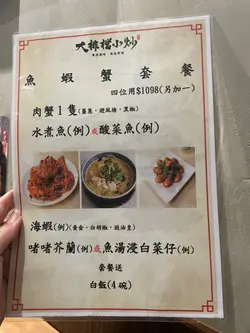 大排檔小炒
魚蝦蟹套餐
四位用$1098(另加一)
肉蟹1隻(薑蔥、避風塘、黑椒)
水煮魚(例)或酸菜魚(例)
海蝦(例)(黃金、白胡椒、豉油皇)
啫啫芥蘭(例)或魚湯浸白菜仔(例)
套餐送
白飯(4碗)